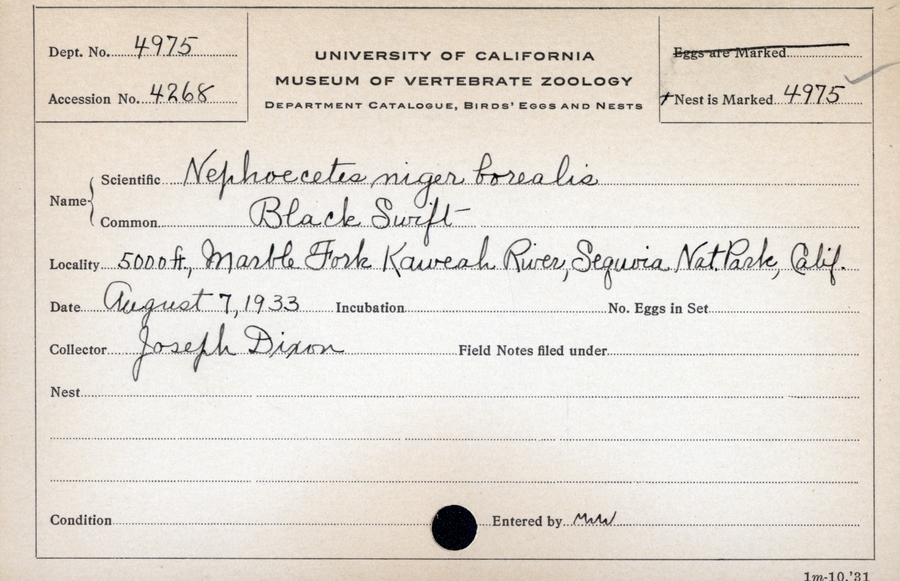 Dept. No. 4975
Accession No. 4268
UNIVERSITY OF CALIFORNIA
MUSEUM OF VERTEBRATE ZOOLOGY
DEPARTMENT CATALOGUE, BIRDS' EGGS AND NESTS
Eggs are Marked
Nest is Marked 4975
Name
Scientific Nephoecetes niger borealis
Common Black Swift
Locality 5000 ft., Marble Fork Kaweah River, Sequoia Nat. Park, Calif.
Date August 7, 1933 Incubation No. Eggs in Set
Collector Joseph Dixon Field Notes filed under
Nest
Condition Entered by
1m-10,'31